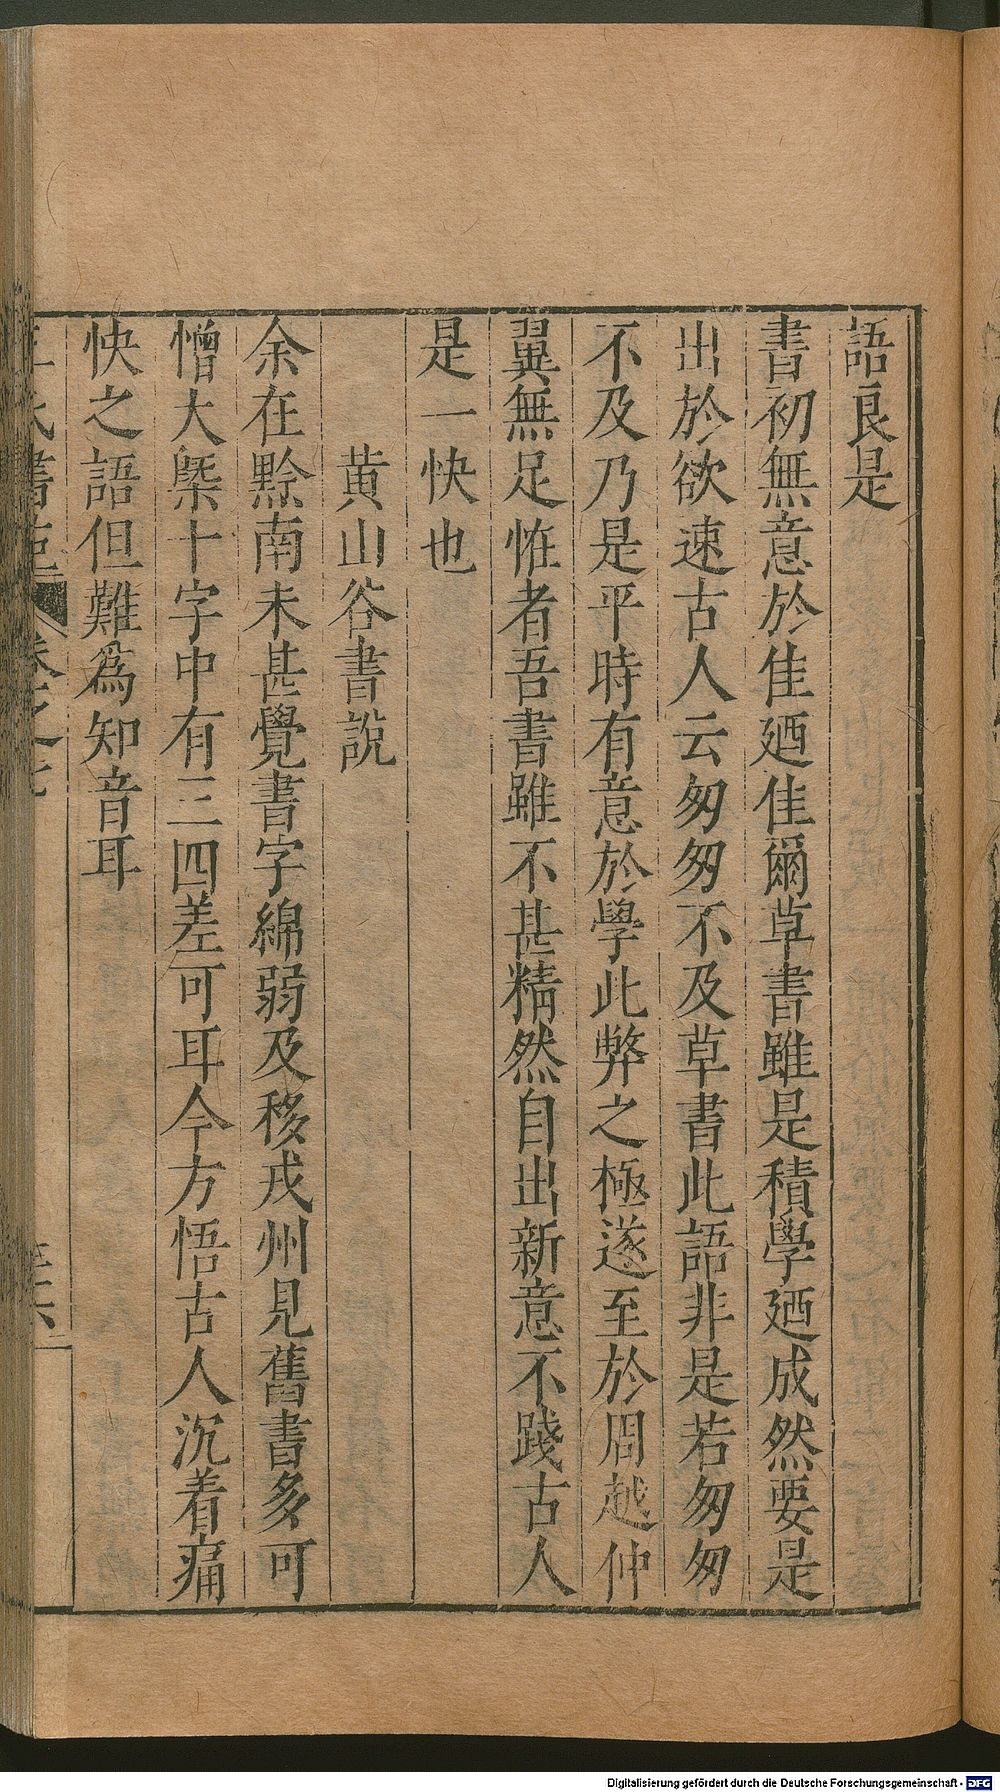 語良是
書初無意於佳廼佳爾草書雖是積學廼成然要是
出於欲速古人云匆匆不及草書此語非是若匆匆
不及乃是平時有意於學此弊之極遂至於周越仲
翼無足恠者吾書雖不甚精然自出新意不踐古人
是一快也
黄山谷書說
余在黔南未甚覺書字綿弱及移戎州見舊書多可
憎大槩十字中有三四差可耳今方悟古人沉着痛
快之語但難爲知音耳
王氏書苑 卷之七
Digitalisierung gefördert durch die Deutsche Forschungsgemeinschaft - DFG